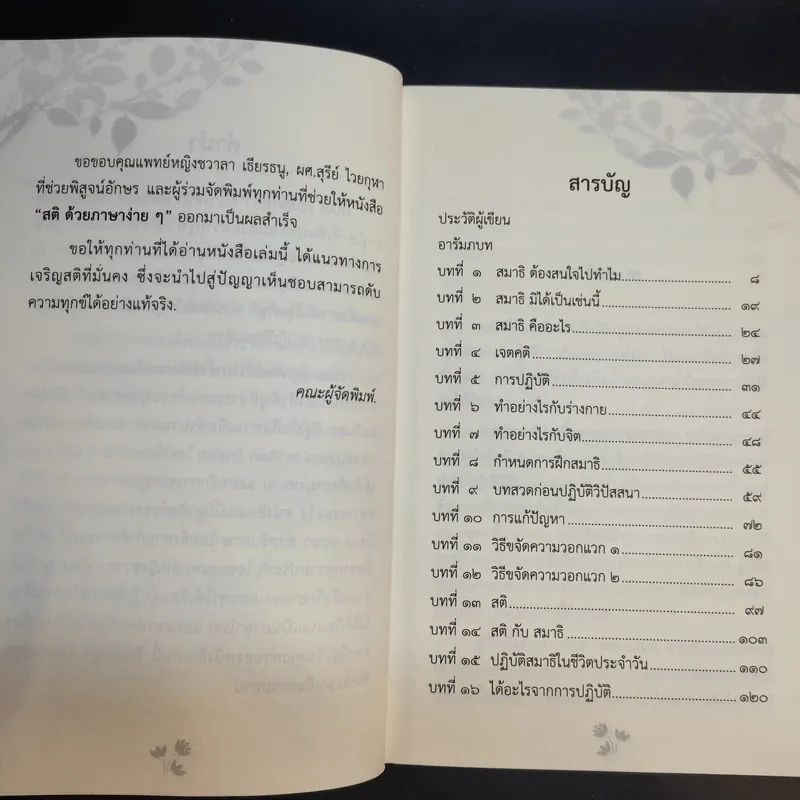 ขอขอบคุณแพทย์หญิงชวาลา เธียรธนู, ผศ.สุรีย์ ไวยกุฬา
ที่ช่วยพิสูจน์อักษร และผู้ร่วมจัดพิมพ์ทุกท่านที่ช่วยให้หนังสือ
“สติ ด้วยภาษาง่าย ๆ” ออกมาเป็นผลสำเร็จ
ขอให้ทุกท่านที่ได้อ่านหนังสือเล่มนี้ ได้แนวทางการ
เจริญสติที่มั่นคง ซึ่งจะนำไปสู่ปัญญาเห็นชอบสามารถดับ
ความทุกข์ได้อย่างแท้จริง.
คณะผู้จัดพิมพ์.
สารบัญ
ประวัติผู้เขียน
อารัมภบท
บทที่ ๑ สมาธิ ต้องสนใจไปทำไม ๘
บทที่ ๒ สมาธิ มิได้เป็นเช่นนี้ ๑๙
บทที่ ๓ สมาธิ คืออะไร ๒๔
บทที่ ๔ เจตคติ ๒๗
บทที่ ๕ การปฏิบัติ ๓๑
บทที่ ๖ ทำอย่างไรกับร่างกาย ๔๔
บทที่ ๗ ทำอย่างไรกับจิต ๔๘
บทที่ ๘ กำหนดการฝึกสมาธิ ๕๕
บทที่ ๙ บทสวดก่อนปฏิบัติวิปัสสนา ๕๙
บทที่ ๑๐ การแก้ปัญหา ๗๒
บทที่ ๑๑ วิธีขจัดความวอกแวก ๑ ๘๑
บทที่ ๑๒ วิธีขจัดความวอกแวก ๒ ๘๖
บทที่ ๑๓ สติ ๙๗
บทที่ ๑๔ สติ กับ สมาธิ ๑๐๓
บทที่ ๑๕ ปฏิบัติสมาธิในชีวิตประจำวัน ๑๑๐
บทที่ ๑๖ ได้อะไรจากการปฏิบัติ ๑๒๐